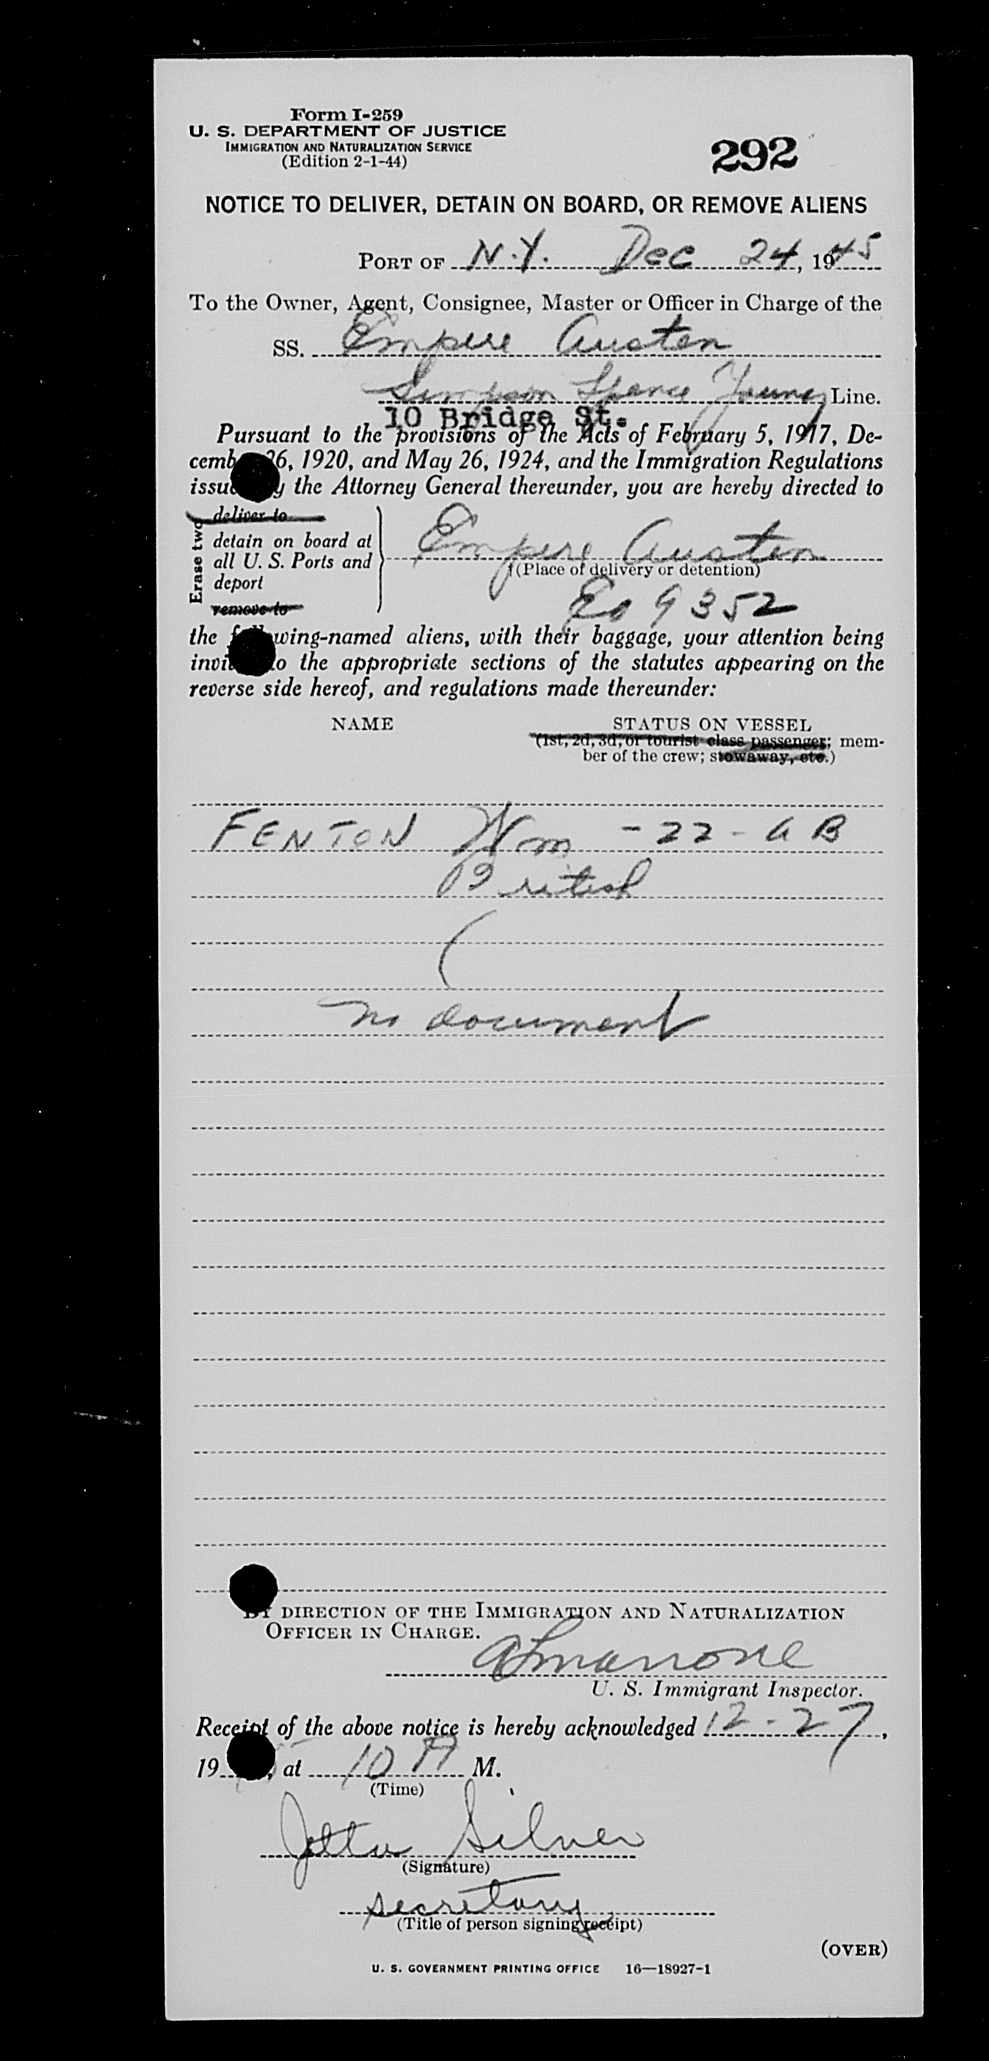 Form I-259
U. S. DEPARTMENT OF JUSTICE
IMMIGRATION AND NATURALIZATION SERVICE
(Edition 2-1-44)
292
NOTICE TO DELIVER, DETAIN ON BOARD, OR REMOVE ALIENS
PORT OF N.Y. Dec 24, 1945
To the Owner, Agent, Consignee, Master or Officer in Charge of the
SS. Empire Austen
Simpson Spence Young Line.
10 Bridge St.
Pursuant to the provisions of the Acts of February 5, 1917, De-
cemb 26, 1920, and May 26, 1924, and the Immigration Regulations
issu y the Attorney General thereunder, you are hereby directed to
Erase two
deliver to
detain on board at
all U. S. Ports and
deport
remove to
Empire Austen
(Place of delivery or detention)
Eo 9352
the f wing-named aliens, with their baggage, your attention being
invi o the appropriate sections of the statutes appearing on the
reverse side hereof, and regulations made thereunder:
NAME STATUS ON VESSEL
(1st, 2d, 3d, or tourist class passenger; mem-
ber of the crew; stowaway, etc.)
FENTON Wm - 22 - A B
British
(
no document
BY DIRECTION OF THE IMMIGRATION AND NATURALIZATION
OFFICER IN CHARGE.
U. S. Immigrant Inspector.
Receipt of the above notice is hereby acknowledged 12-27,
19 5, at 10 A M.
(Time)
Silver
(Signature)
secretary
(Title of person signing receipt)
(OVER)
U. S. GOVERNMENT PRINTING OFFICE 16—18927-1